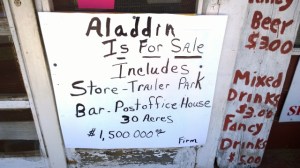 Aladdin
Is For Sale
Includes:
Store-Trailer Park
Bar-Postoffice House
30 Acres
$1,500 000
Firm
Fancy
Beer
$3.00
Mixed
Drinks
$3.00
Fancy
Drinks